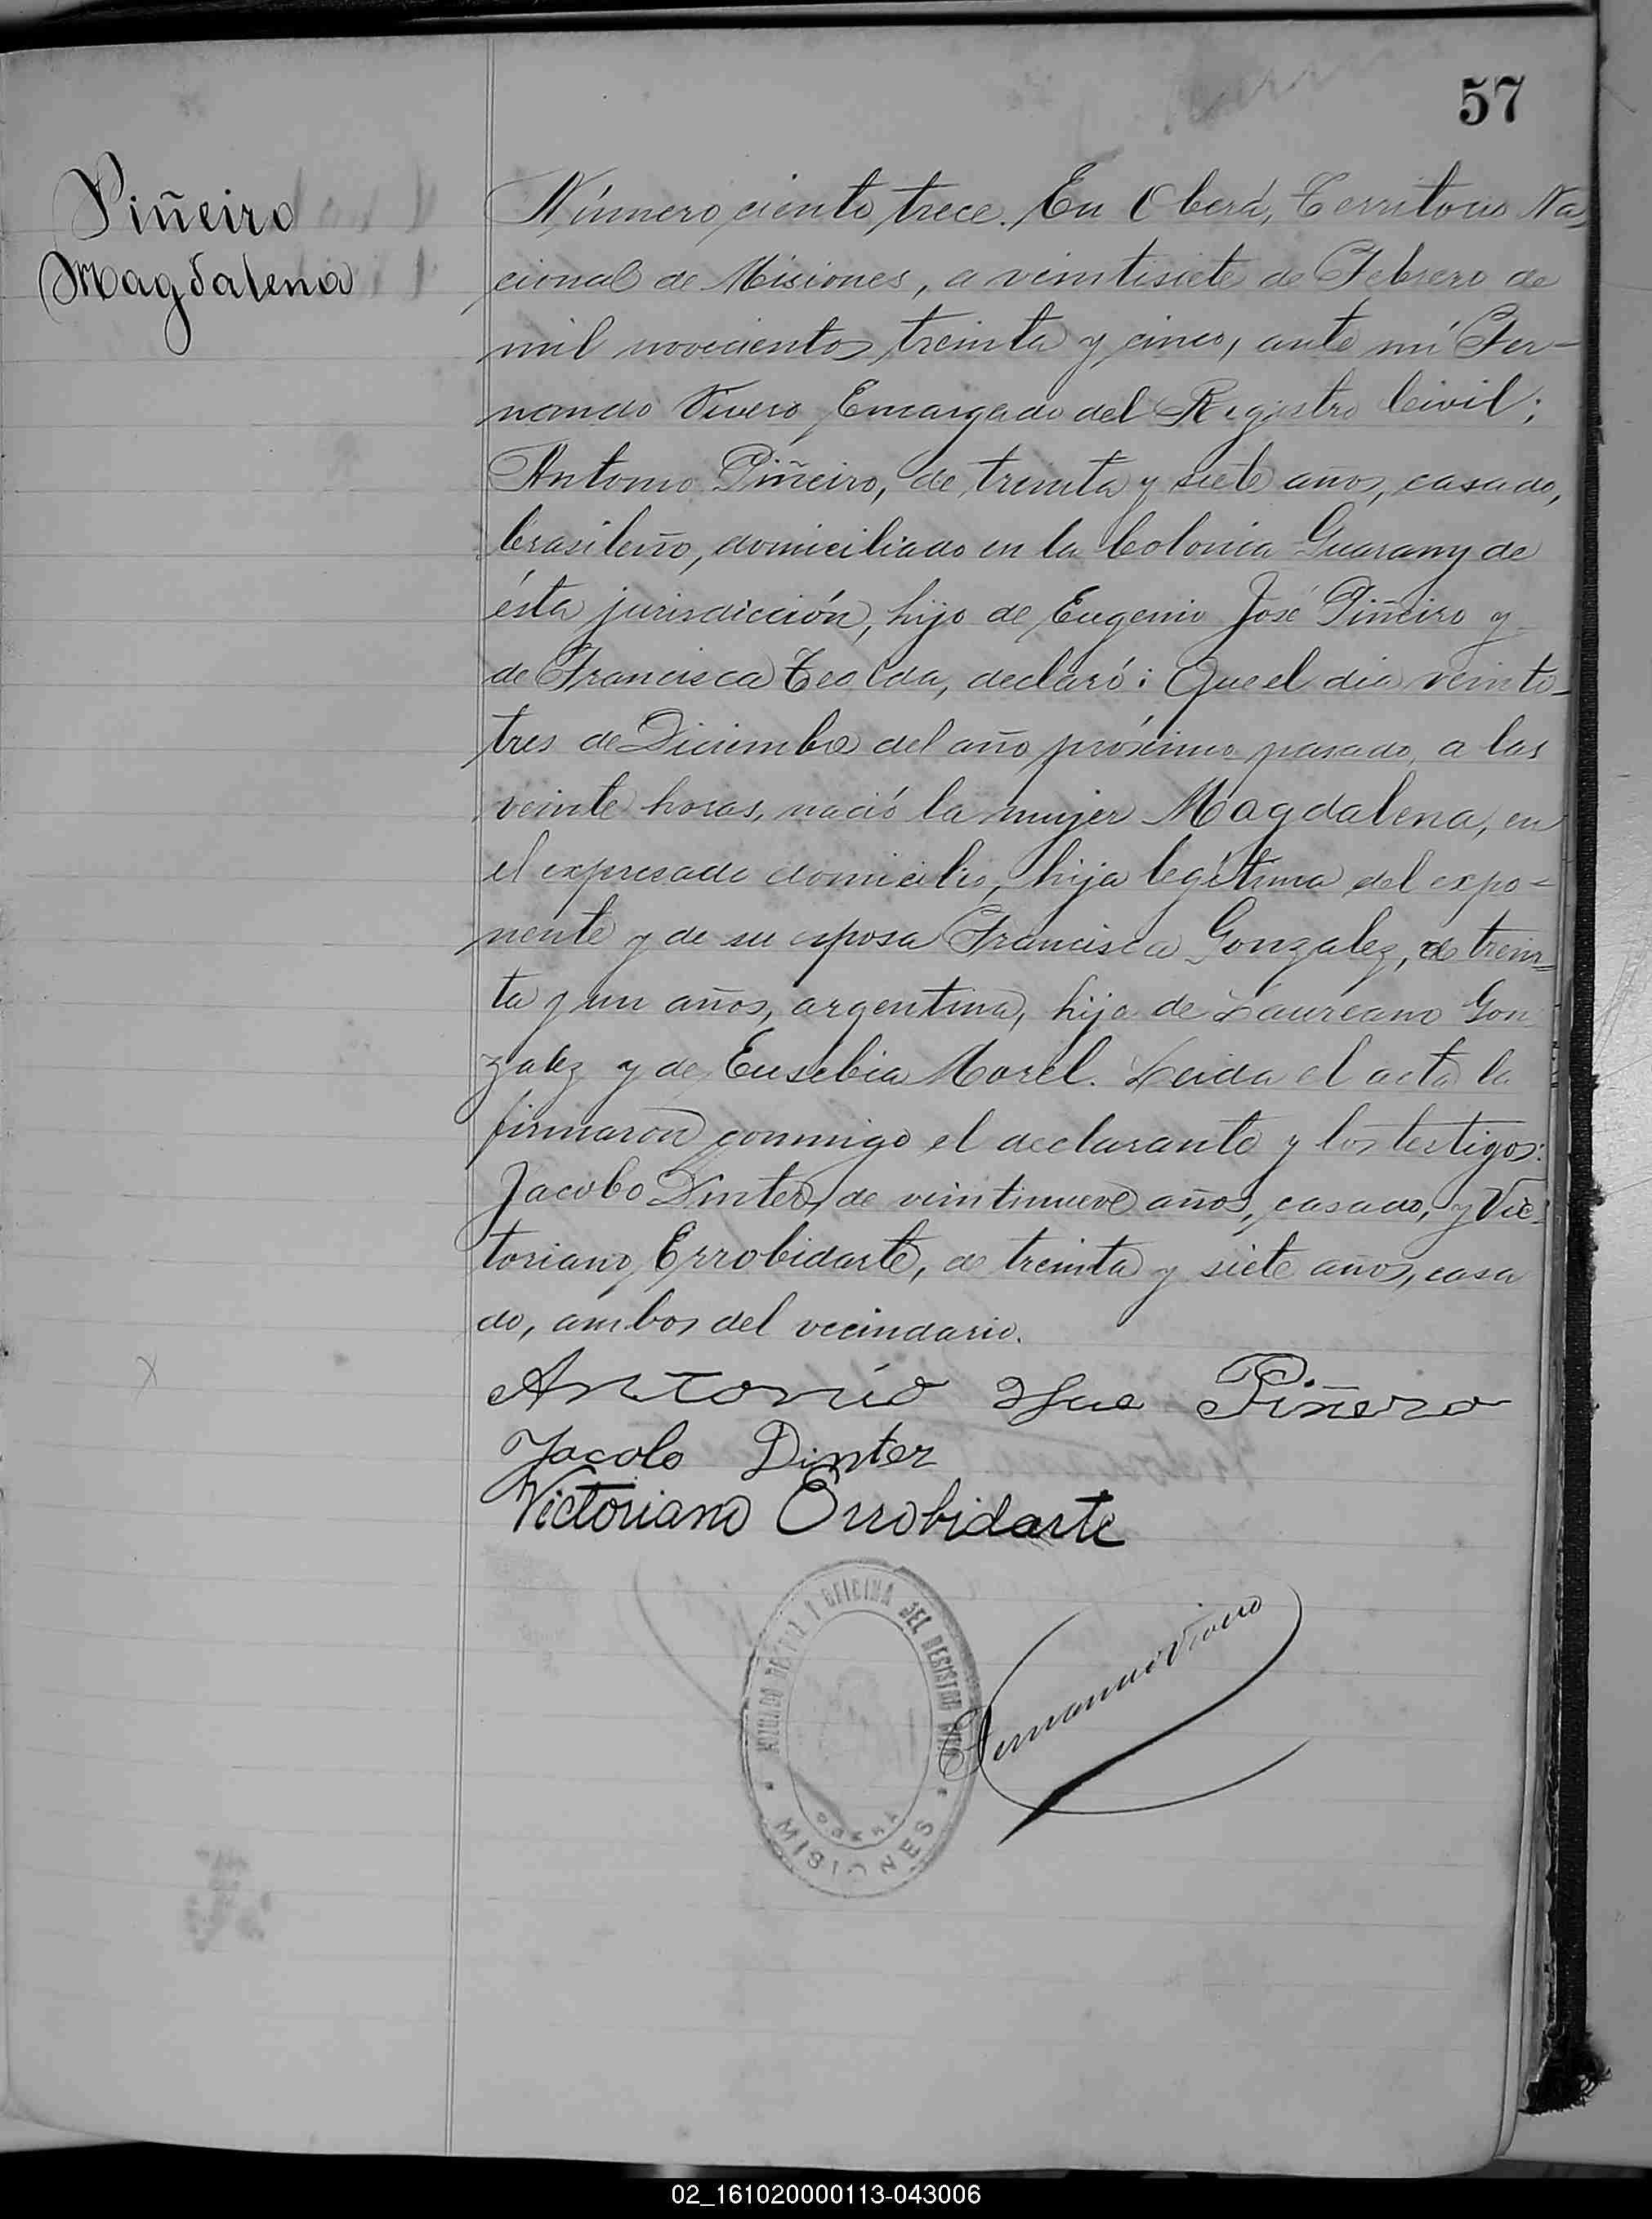 57
Piñeiro
Magdalena
Número ciento trece. En Oberá, Territorio Na
cional de Misiones, a veintisiete de Febrero de
mil novecientos treinta y cinco, ante mí Fer-
nando Vivero Encargado del Registro Civil;
Antonio Piñeiro, de treinta y siete años, casado,
brasileño, domiciliado en la Colonia Guarany de
ésta jurisdicción, hijo de Eugenio José Piñeiro y
de Francisca, declaró: Que el dia veinti-
tres de Diciembre del año próximo pasado, a las
veinte horas, nació la mujer Magdalena, en
el expresado domicilio, hija legítima del expo-
nente y de su esposa Francisca Gonzalez, de trein-
ta y un años, argentina, hija de Laureano Gon
zalez y de Eusebia Morel. Leida el acta la
firmaron conmigo el declarante y los testigos:
Jacobo Dinter, de veintinueve años, casado, y Vic-
toriano Errobidarte, de treinta y siete años, casa
do, ambos del vecindario.
Antonio Piñero
Jacobo Dinter
Victoriano Errobidarte
OFICINA DEL REGISTRO CIVIL
OBERÁ
MISIONES
Fernando Vivero
02_161020000113-043006